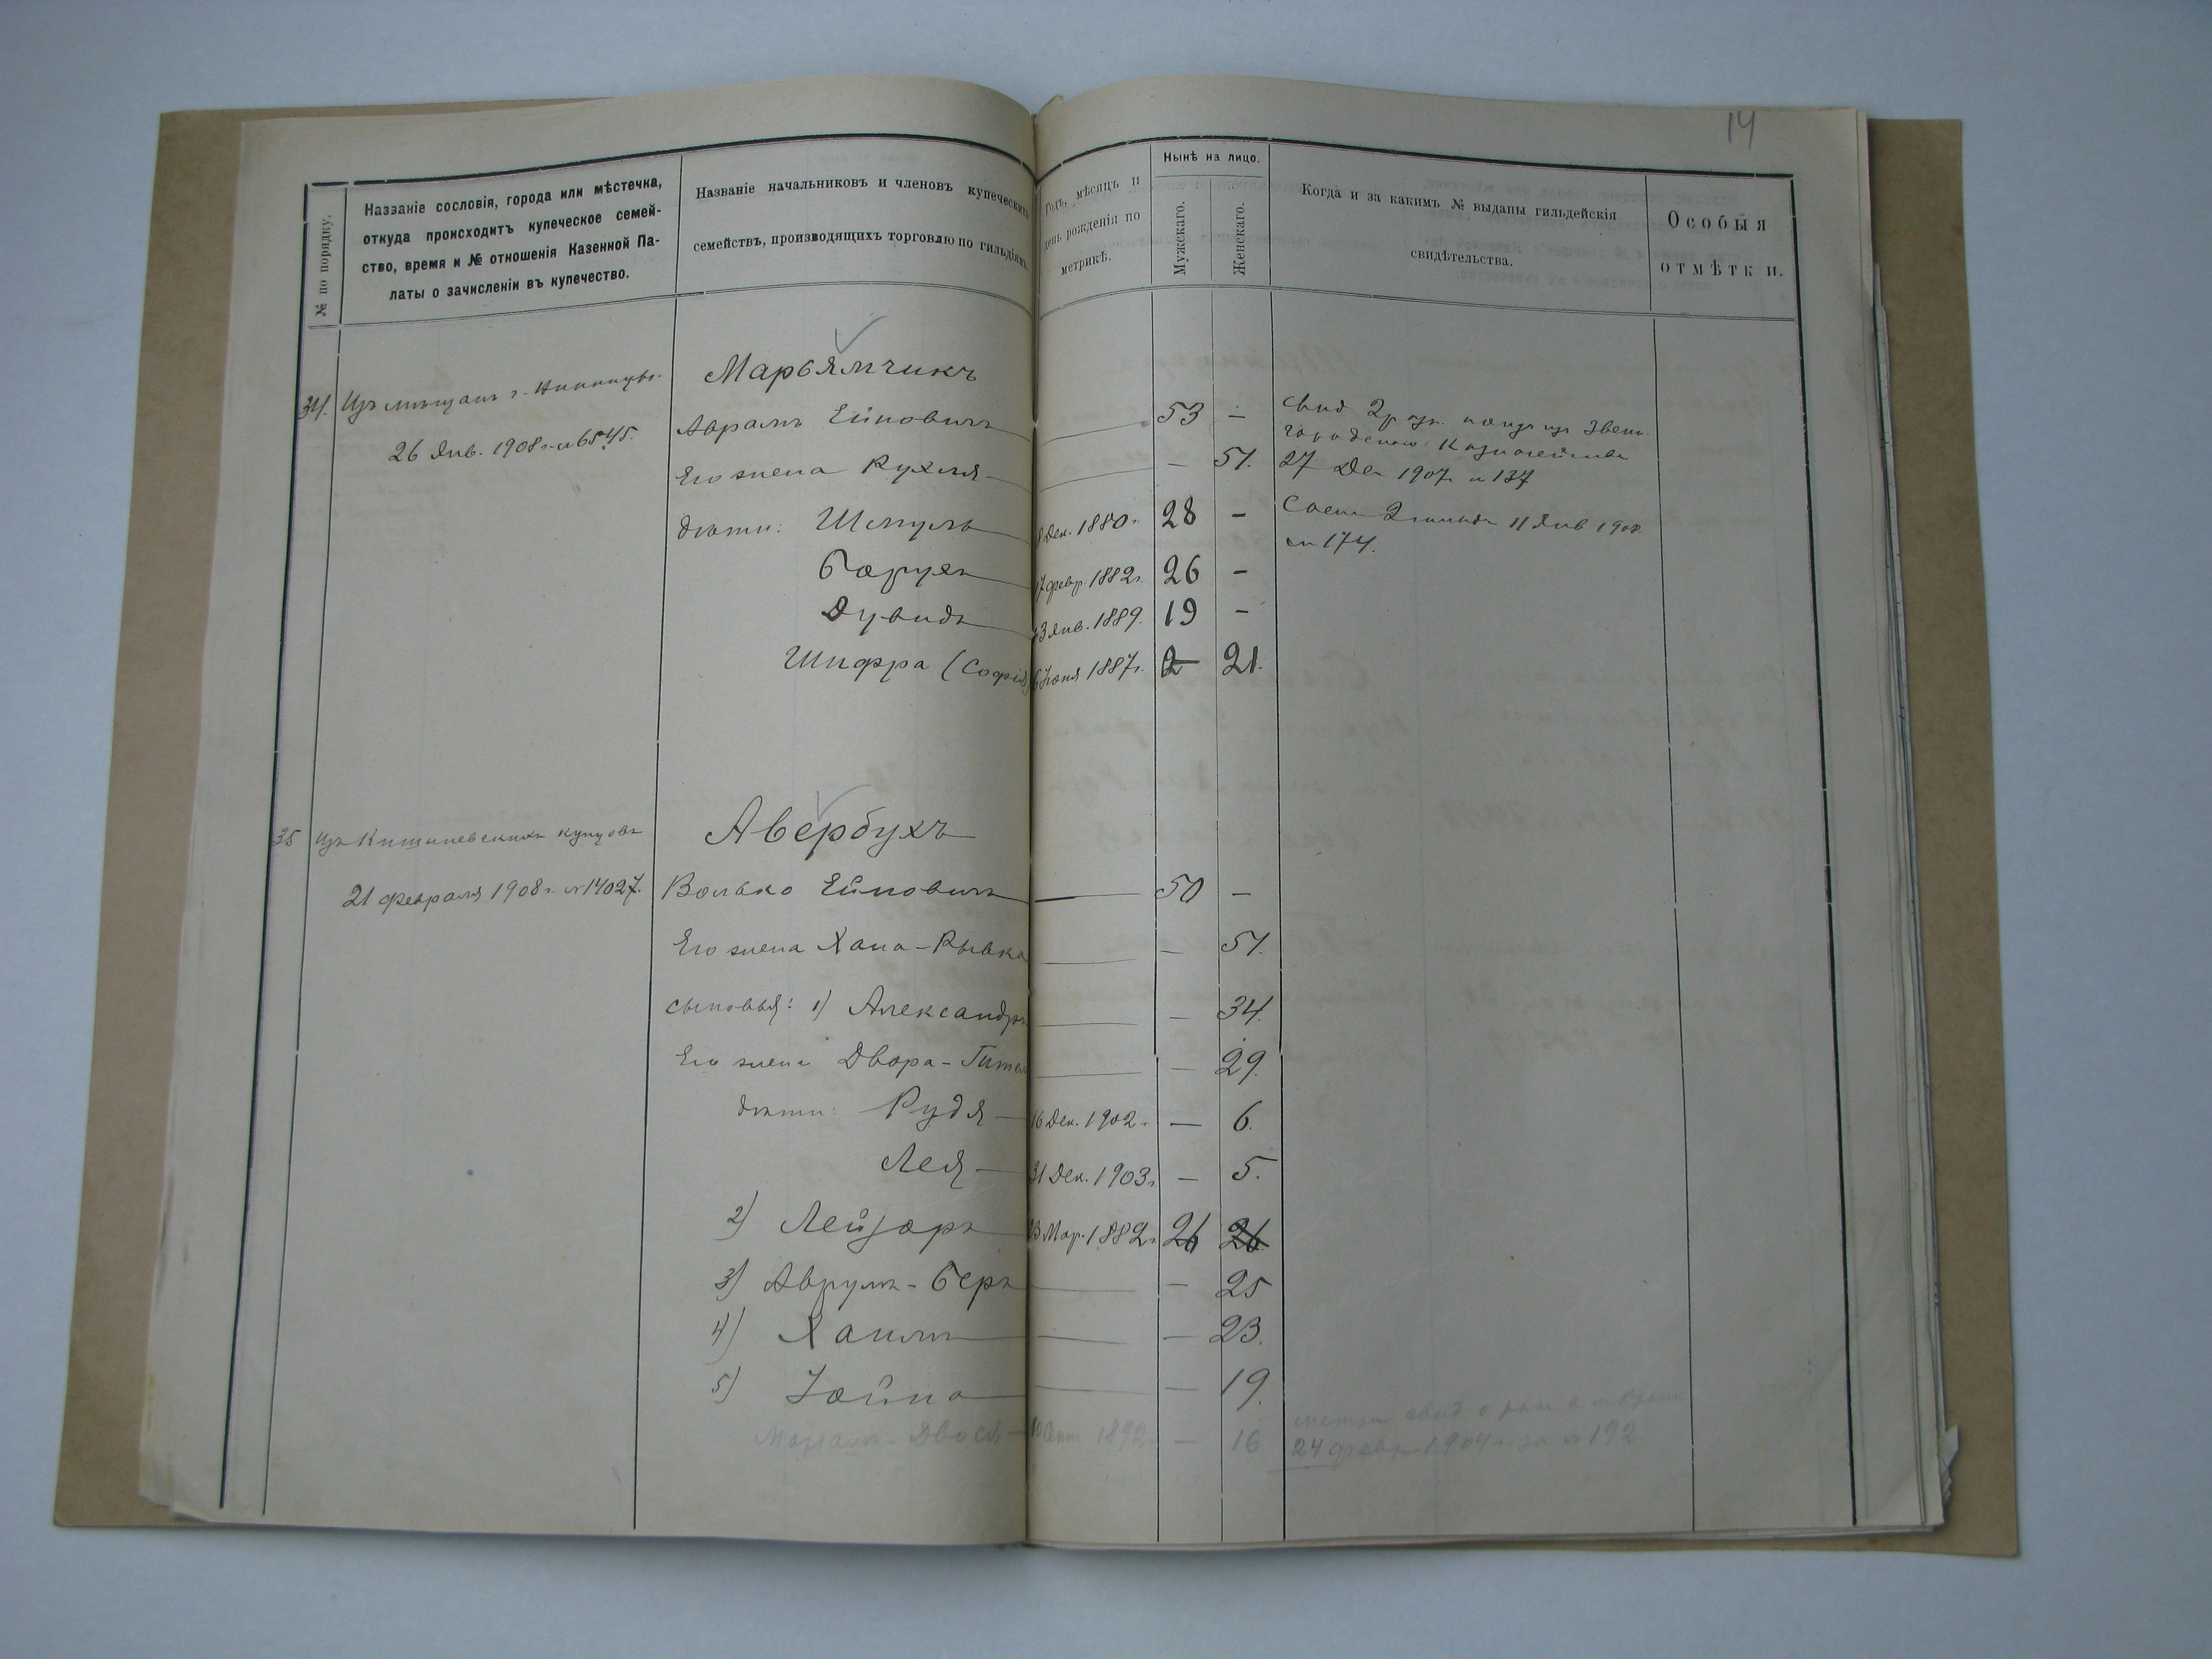 14
№ по порядку.
Названіе сословія, города или мѣстечка,
откуда происходитъ купеческое семей-
ство, время и № отношенія Казенной Па-
латы о зачисленіи въ купечество.
Названіе начальниковъ и членовъ купеческихъ
семействъ, производящихъ торговлю по гильдіямъ.
Годъ, мѣсяцъ и
день рожденія по
метрикѣ.
Нынѣ на лицо.
Мужскаго.
Женскаго.
Когда и за какимъ № выданы гильдейскія
свидѣтельства.
Особыя
отмѣтки.
Марьямчикъ
34. Изъ мѣщанъ г.
26 Янв. 1908 г. № 6545.
Аврамъ Ейновичъ — 53 —
Его жена Рухля — — 51.
Свид 2 изъ Звени
городскаго Казначейства
27 Дек 1907 № 137
дѣти: Шмуль 8 Дек. 1880 г. 28 —
2 11 Янв 1908
№ 174.
Борухъ 17 февр. 1882 г. 26 —
Дувидъ 23 Янв. 1889. 19 —
Шифра (Софія) 6 Іюня 1887 г. 2 21.
Авербухъ
35 Изъ Кишиневскихъ купцовъ
21 февраля 1908 г. № 14027.
Волько Ейновичъ — 50 —
Его жена Хана-Рывка — — 51.
сыновья: 1) Александръ — — 34.
Его жена Двора-Гитель — — 29.
дѣти: Рудя — 16 Дек. 1902 г. — 6.
Лея — 31 Дек. 1903 г. — 5.
2) Лейзоръ 23 Мар. 1882 г. 26 26
3) Аврумъ-Беръ — — 25
4) Хаимъ — — 23.
5) Іойна — — 19.
Маріамъ-Двося — 10 Сент 1892 — 16
метр свид о
24 февр 1904 г за № 192